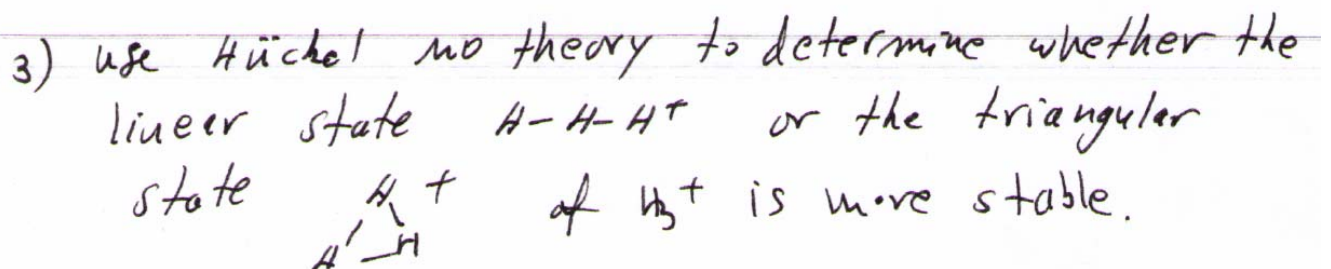 3) use Hückel MO theory to determine whether the
linear state H-H-H+ or the triangular
state H + of H3+ is more stable.
H H